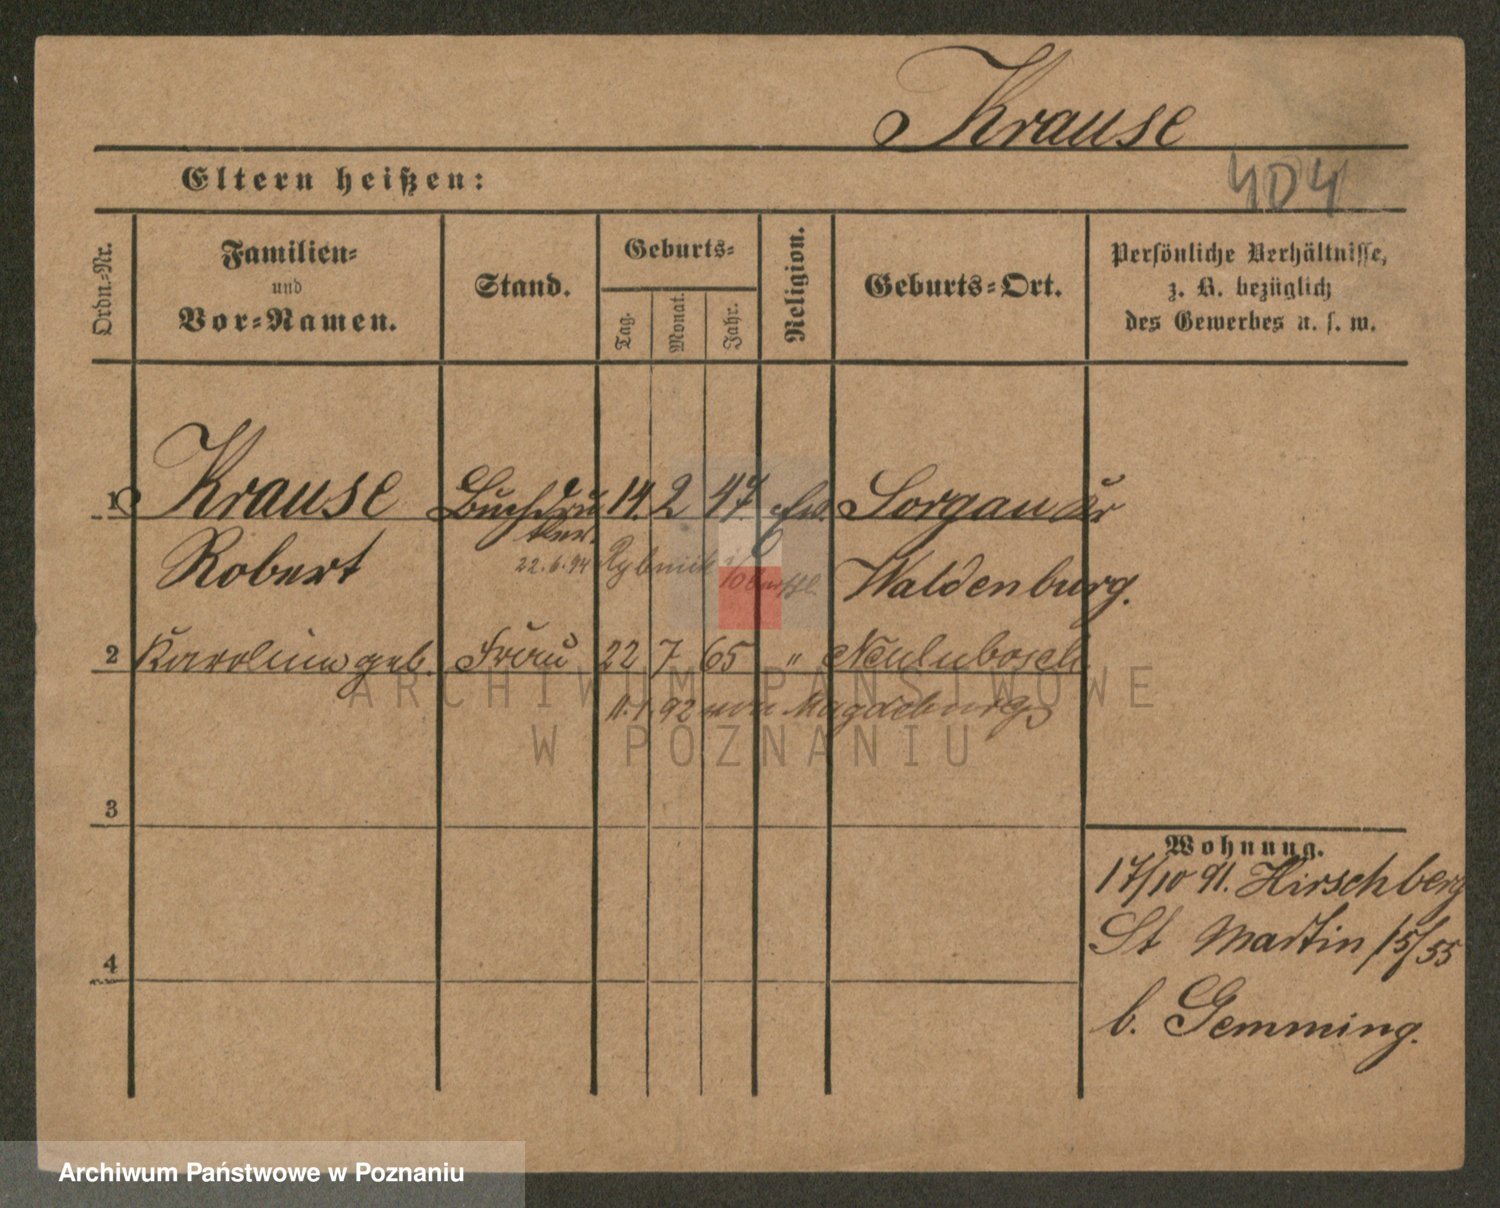 Krause
Eltern heißen:
404
Ordn.-Nr.
Familien-
und
Vor-Namen.
Stand.
Geburts-
Tag.
Monat.
Jahr.
Religion.
Geburts-Ort.
Persönliche Verhältnisse,
z. B. bezüglich
des Gewerbes u. s. w.
1 Krause Buchdru 14. 2 47. ev. Sorgau Kr
Robert ker. Waldenburg.
22.6.94 Rybnik i/Oberschl.
2 Karoline geb. Frau 22 7 65 "
11. 1. 92 von Magdeburg
3
4
Wohnung.
17/10 91. Hirschberg
St Martin 15/55
b. Gemming.
ARCHIWUM PAŃSTWOWE
W POZNANIU
Archiwum Państwowe w Poznaniu